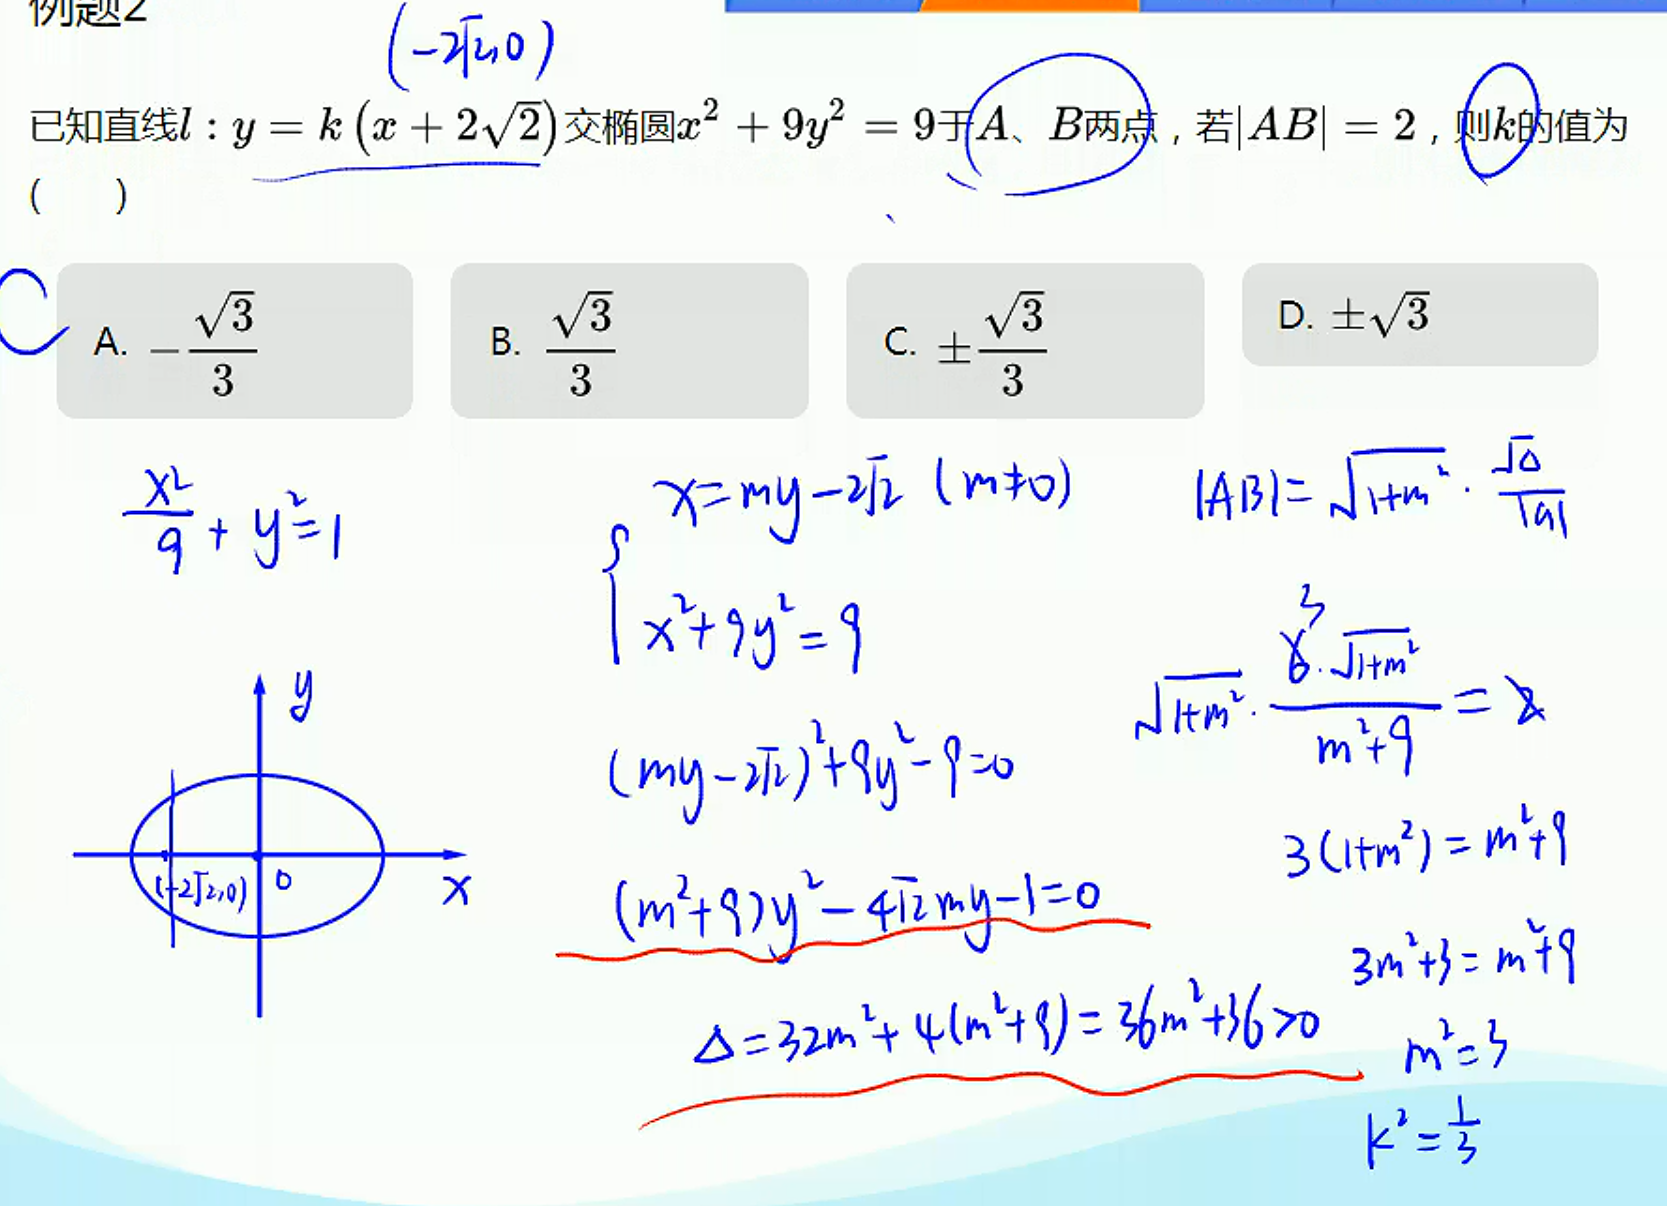 例题2
(-2√2,0)
已知直线l : y = k(x + 2√2)交椭圆x² + 9y² = 9于A、B两点，若|AB| = 2，则k的值为
(　　)
C
A. -√3/3
B. √3/3
C. ±√3/3
D. ±√3
x²/9 + y² = 1
x = my - 2√2 (m≠0)
x² + 9y² = 9
(my - 2√2)² + 9y² - 9 = 0
(m² + 9)y² - 4√2my - 1 = 0
Δ = 32m² + 4(m² + 9) = 36m² + 36 > 0
|AB| = √(1+m²) · √Δ/|a|
3
√(1+m²) · 6·√(1+m²)/(m²+9) = 2
3(1+m²) = m²+9
3m²+3 = m²+9
m² = 3
k² = 1/3
y
(-2√2,0)
0
x